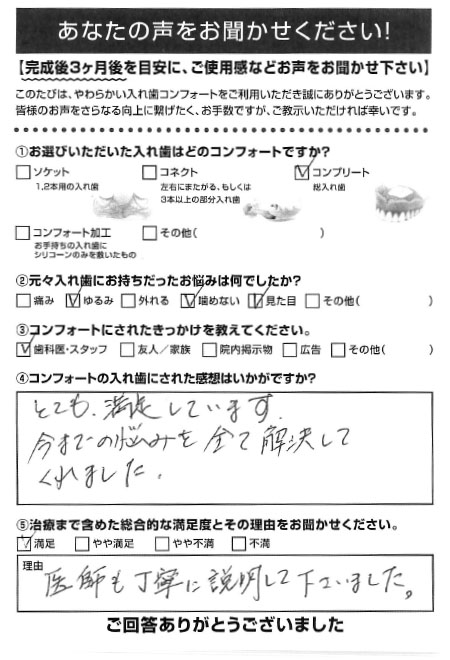 あなたの声をお聞かせください!
【完成後3ヶ月後を目安に、ご使用感などお声をお聞かせ下さい】
このたびは、やわらかい入れ歯コンフォートをご利用いただき誠にありがとうございます。
皆様のお声をさらなる向上に繋げたく、お手数ですが、ご教示いただければ幸いです。
①お選びいただいた入れ歯はどのコンフォートですか?
□ソケット □コネクト ☑コンプリート
1,2本用の入れ歯 左右にまたがる、もしくは 総入れ歯
3本以上の部分入れ歯
□コンフォート加工 □その他( )
お手持ちの入れ歯に
シリコーンのみを敷いたもの
②元々入れ歯にお持ちだったお悩みは何でしたか?
□痛み ☑ゆるみ □外れる ☑噛めない ☑見た目 □その他( )
③コンフォートにされたきっかけを教えてください。
☑歯科医・スタッフ □友人/家族 □院内掲示物 □広告 □その他( )
④コンフォートの入れ歯にされた感想はいかがですか?
とても、満足しています.
今までの悩みを全て解決して
くれました.
⑤治療まで含めた総合的な満足度とその理由をお聞かせください。
☑満足 □やや満足 □やや不満 □不満
理由 医師も丁寧に説明して下さいました。
ご回答ありがとうございました